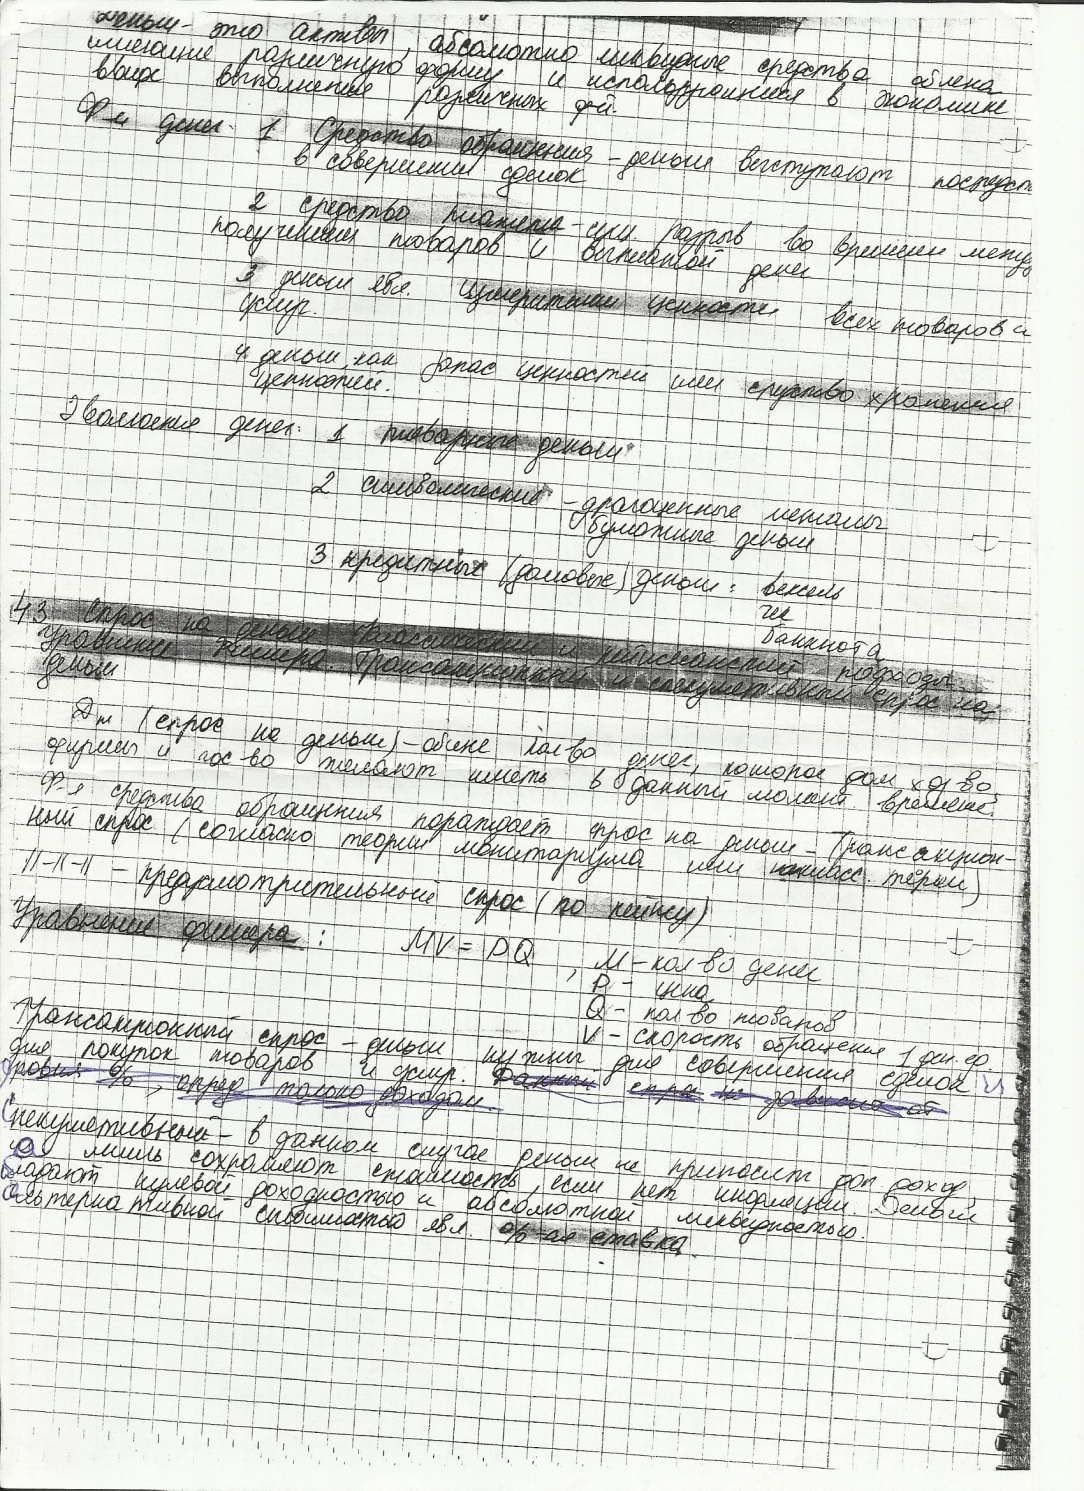 Деньги - это активы, абсолютно ликвидные средства обмена
имеющие различную форму и использующиеся в экономике
ввиде выполнения различных ф-й.
Ф-и денег: 1 Средство обращения - деньги выступают посредст
в совершении сделок
2 средство платежа - при разрыв во времени между
получением товаров и выплатой денег
3 деньги явл. измерителем ценности всех товаров и
услуг.
4. деньги, как запас ценностей или средство хранения
ценностей.
Эволюция денег: 1 товарные деньги
2 символические - драгоценные металлы
бумажные деньги
3 кредитных (долговых) деньги: вексель
чек
банкнота
43 Спрос на деньги классический и кейнсианский подходы.
Уравнение Фишера. Трансакционный и спекулятивный спрос на
деньги
Dm (спрос на деньги) - общее кол-во денег, которое дом. хоз-во,
фирмы и гос-во желают иметь в данный момент времени.
Ф-я средства обращения порождает спрос на деньги - Трансакцион-
ный спрос (согласно теории монитаризма или класс. теории)
11-11-11 - предусмотрительный спрос (по кейнсу)
Уравнение фишера: MV = PQ, M - кол-во денег
P - цена
Q - кол-во товаров
V - скорость обращения 1 ден. ед
Трансакционный спрос - деньги нужны для совершения сделок
для покупок товаров и услуг. Данный спрос не зависит от
уровня %, опред только доходом.
Спекулятивный - в данном случае деньги не приносит доп доход,
а лишь сохраняют стоимость, если нет инфляции. Деньги
обладают нулевой доходностью и абсолютной ликвидностью.
альтернативной стоимостью явл. %-ая ставка.